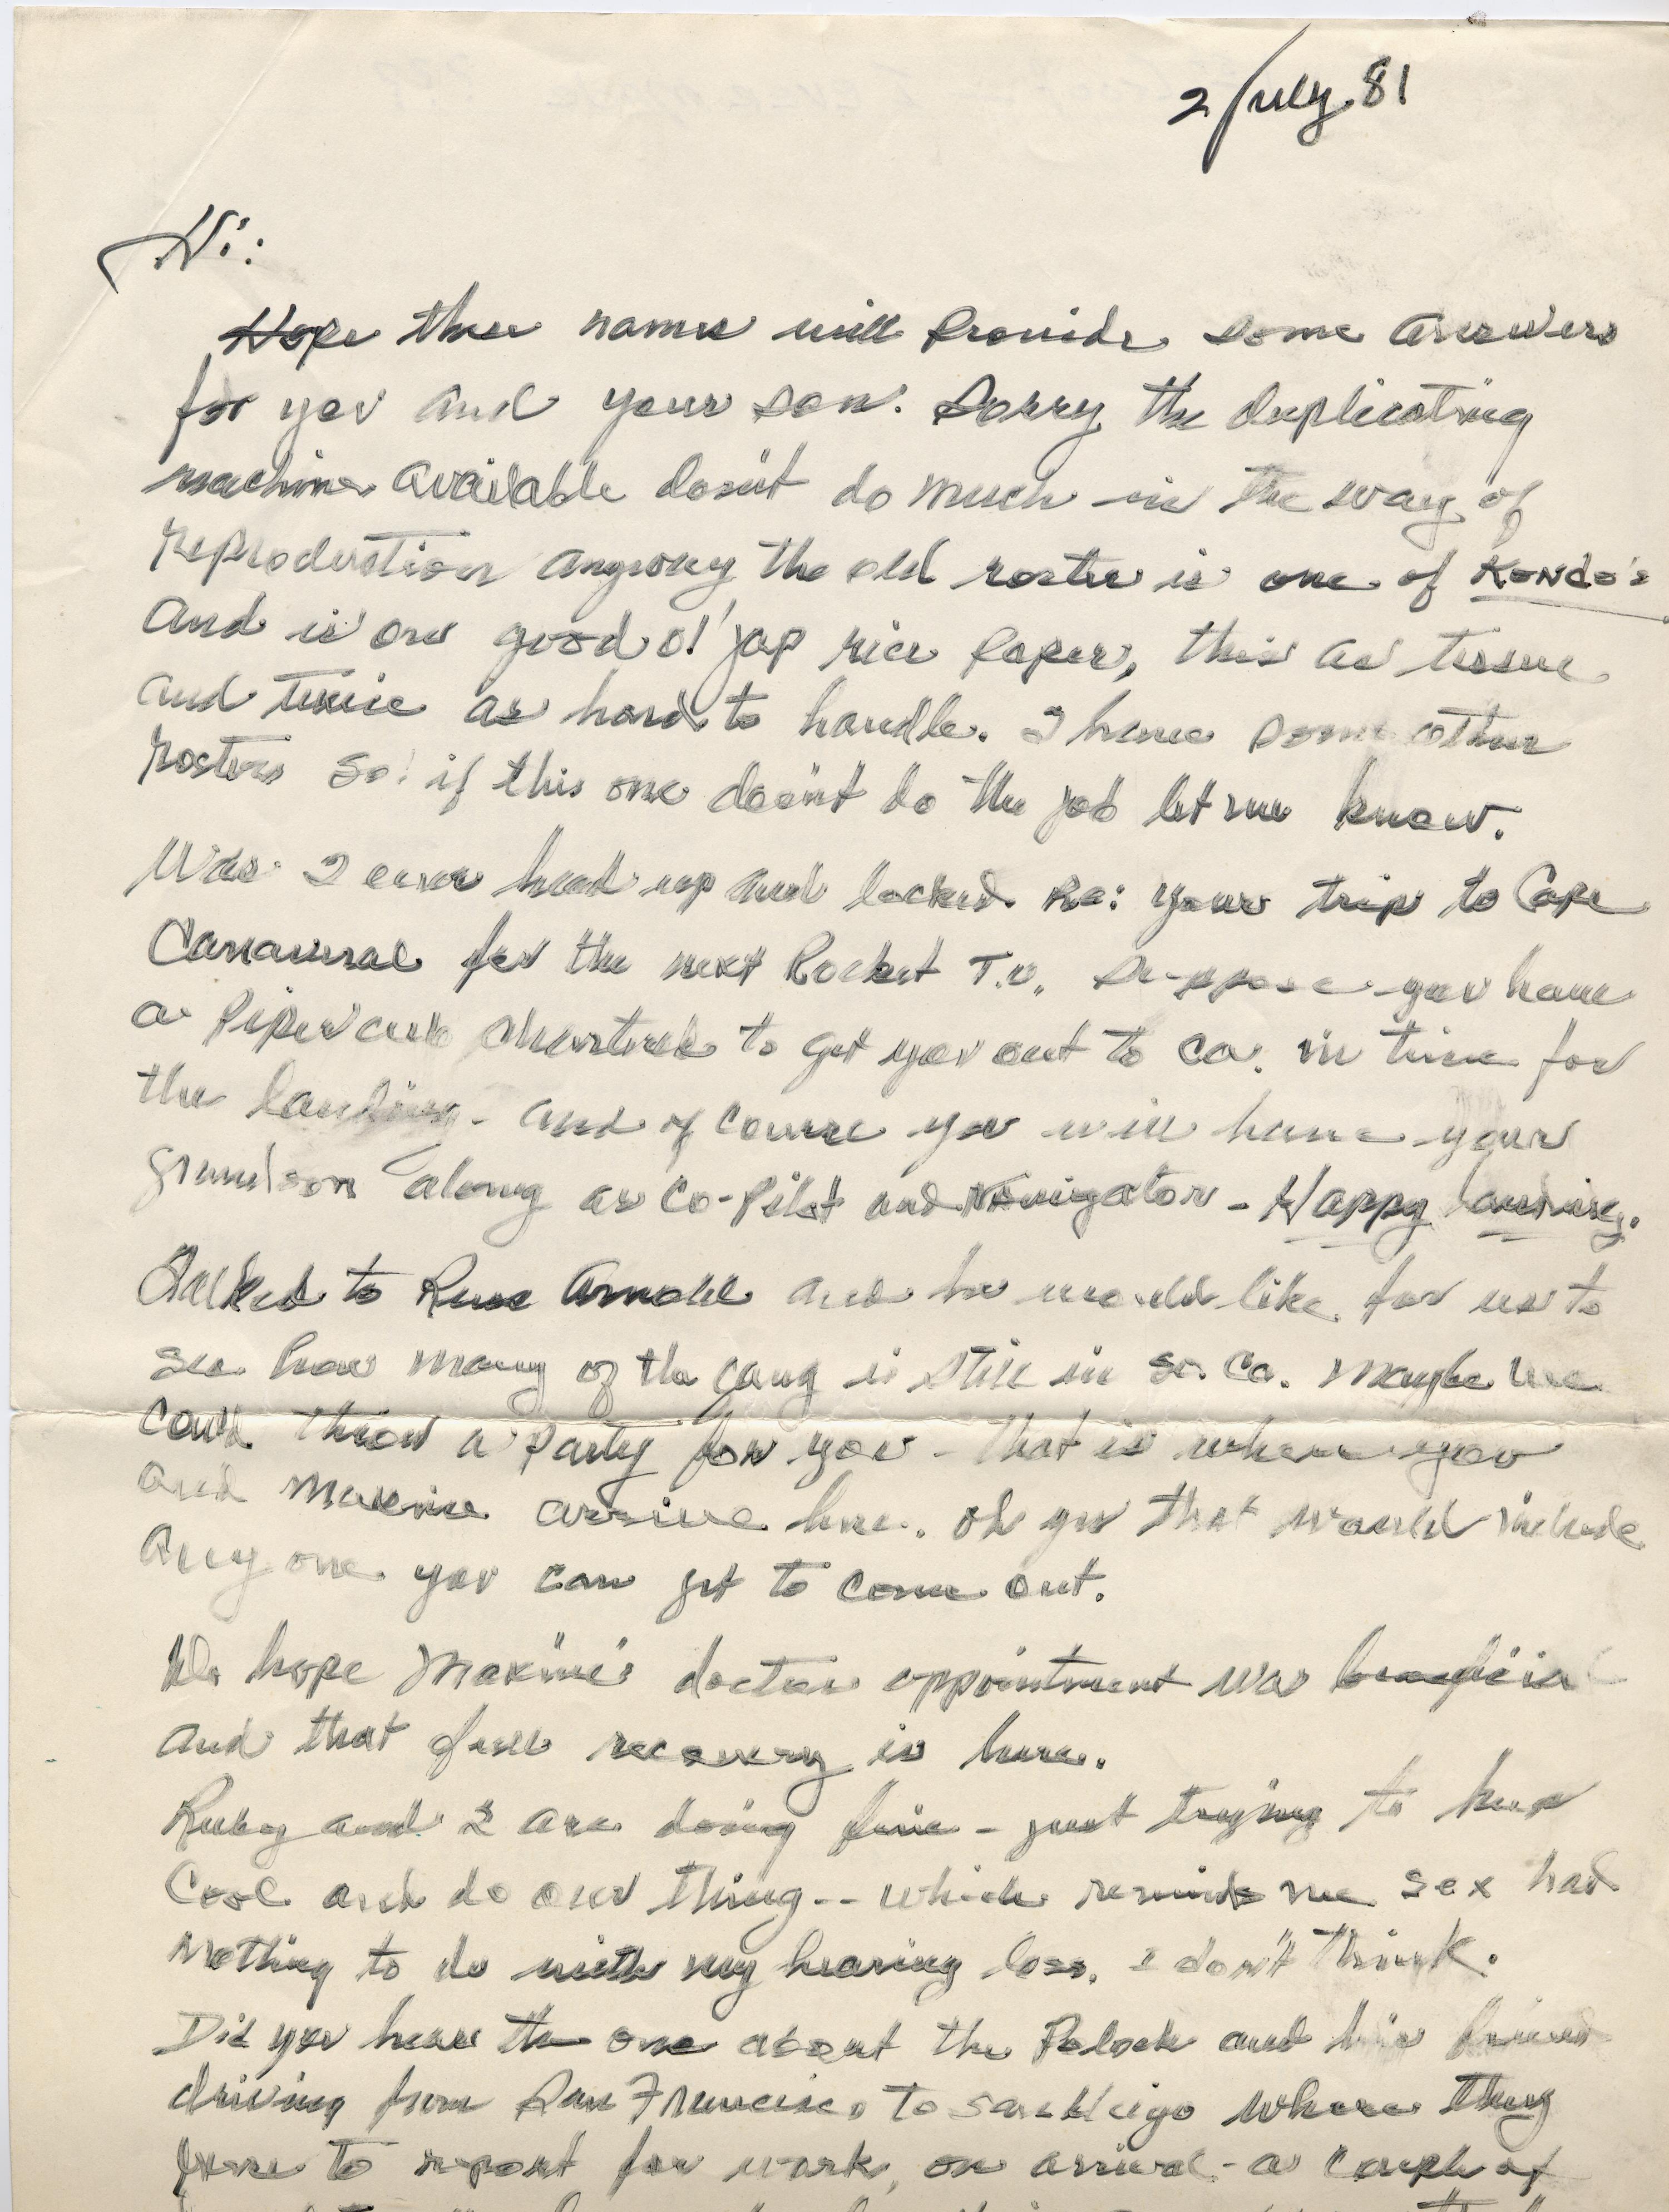 2 July 81
Hi:
Hope these names will provide some answers
for you and your son. Sorry the duplicating
machine available dosn't do much in the way of
reproduction anyway the old roster is one of Kondo's
and is on good ol' Jap rice paper, thin as tissue
and twice as hard to handle. I have some other
rosters so! if this one doesn't do the job let me know.
Was I ever head up and locked Re: your trip to Cape
Canaveral for the next Rocket T.O. Suppose you have
a Piper cub chartered to get you out to Ca. in time for
the landing - and of course you will have your
grandson along as Co-Pilot and Navigator - Happy landing.
Talked to Russ Arnold and he would like for us to
see how many of the gang is still in So. Ca. Maybe we
could throw a party for you - that is when you
and Maxine arrive here. Oh yes that would include
any one you can get to come out.
We hope Maxine's doctor appointment was beneficial
and that full recovery is here.
Ruby and I are doing fine - just trying to keep
cool and do our thing -- which reminds me sex had
nothing to do with my hearing loss. I don't think.
Did you hear the one about the Polock and his friend
driving from San Francisco to San Diego where they
were to report for work, on arrival - a couple of